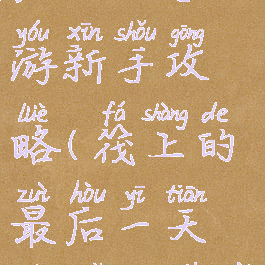 yóu xīn shǒu gōng
游新手攻
lüè fá shàng de
略(筏上的
zuì hòu yī tiān
最后一天